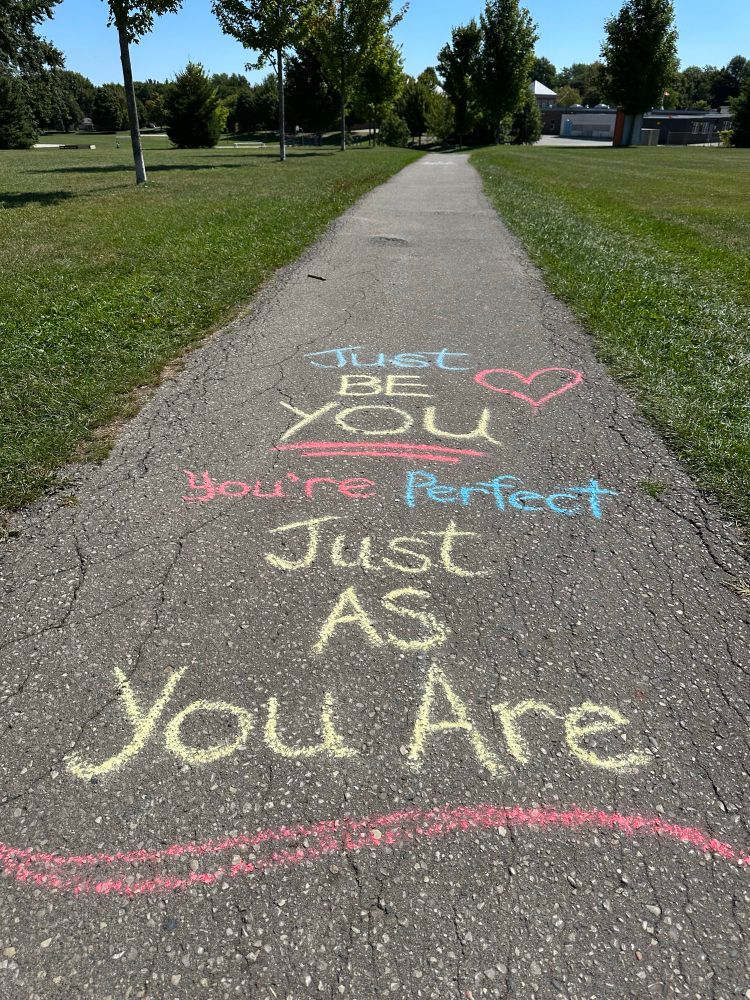 Just
BE
YOU
You're Perfect
Just
AS
You Are